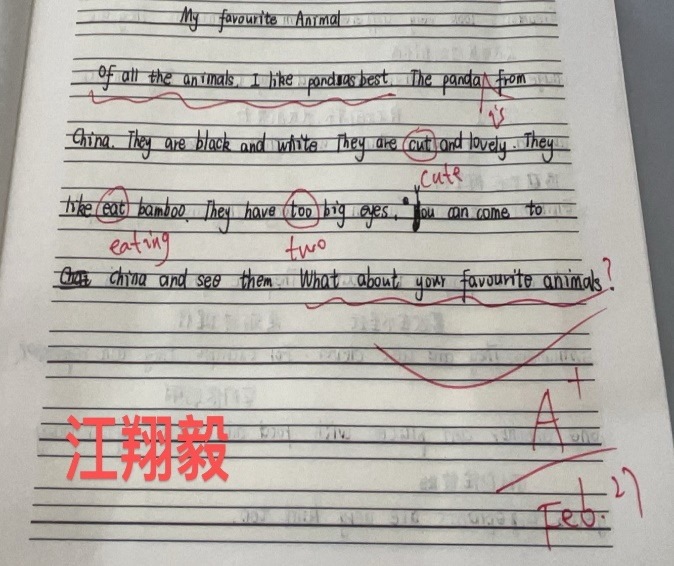 My favourite Animal
Of all the animals, I like pandas best. The panda from
is
China. They are black and white They are cut and lovely. They
cute
like eat bamboo. They have too big eyes. You can come to
eating two
china and see them. What about your favourite animals?
A+
江翔毅
Feb. 27